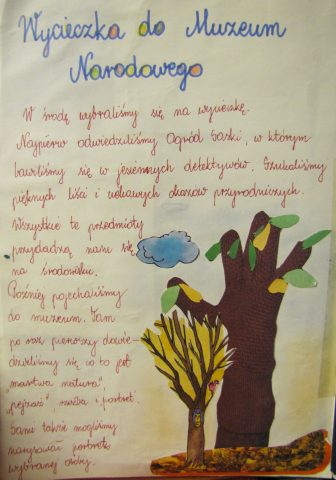 Wycieczka do Muzeum
Narodowego
W środę wybraliśmy się na wycieczkę.
Najpierw odwiedziliśmy Ogród Saski, w którym
bawiliśmy się w jesiennych detektywów. Szukaliśmy
pięknych liści i ciekawych okazów przyrodniczych.
Wszystkie te przedmioty
przydadzą nam się
na środowisku.
Później pojechaliśmy
do muzeum. Tam
po raz pierwszy dowie-
dzieliśmy się co to jest
"martwa natura",
"pejzaż", rzeźba i portret.
Sami także mogliśmy
narysować portret
wybranej osoby.